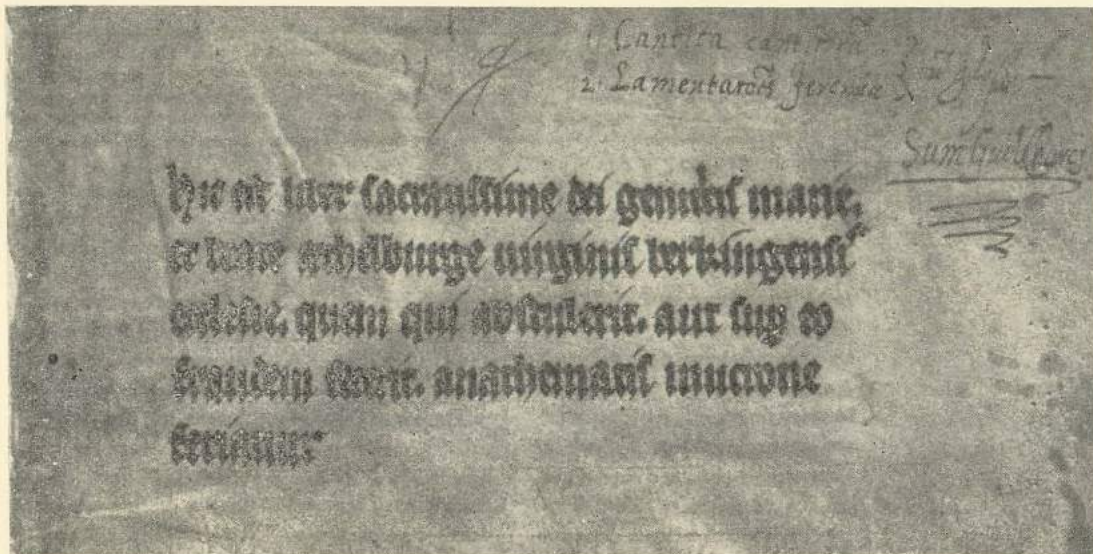 1 Cantica canticor
2. Lamentacões Jeremie
Sum Guill
hic est liber sacratissime dei genitricis marie.
et beate ethelburge uirginis berkingensis
ecclesie. quem qui abstulerit. aut sup eo
fraudem fecerit. anathematis mucrone
feriatur.